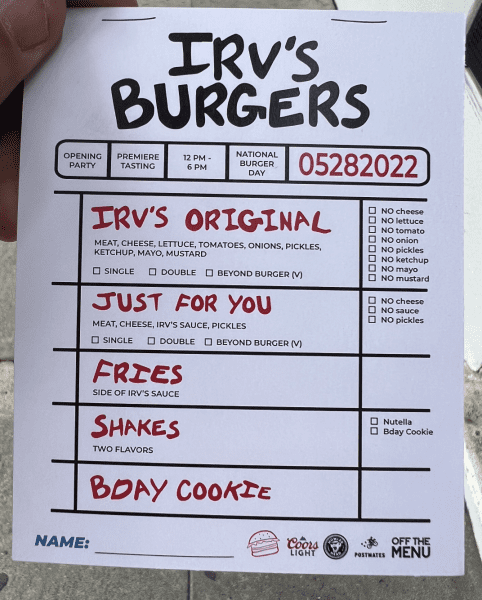 IRV'S
BURGERS
OPENING
PARTY
PREMIERE
TASTING
12 PM -
6 PM
NATIONAL
BURGER
DAY
05282022
IRV'S ORIGINAL
MEAT, CHEESE, LETTUCE, TOMATOES, ONIONS, PICKLES,
KETCHUP, MAYO, MUSTARD
SINGLE DOUBLE BEYOND BURGER (V)
NO cheese
NO lettuce
NO tomato
NO onion
NO pickles
NO ketchup
NO mayo
NO mustard
JUST FOR YOU
MEAT, CHEESE, IRV'S SAUCE, PICKLES
SINGLE DOUBLE BEYOND BURGER (V)
NO cheese
NO sauce
NO pickles
FRIES
SIDE OF IRV'S SAUCE
SHAKES
TWO FLAVORS
Nutella
Bday Cookie
BDAY COOKIE
NAME:
Coors
LIGHT
POSTMATES
OFF THE
MENU